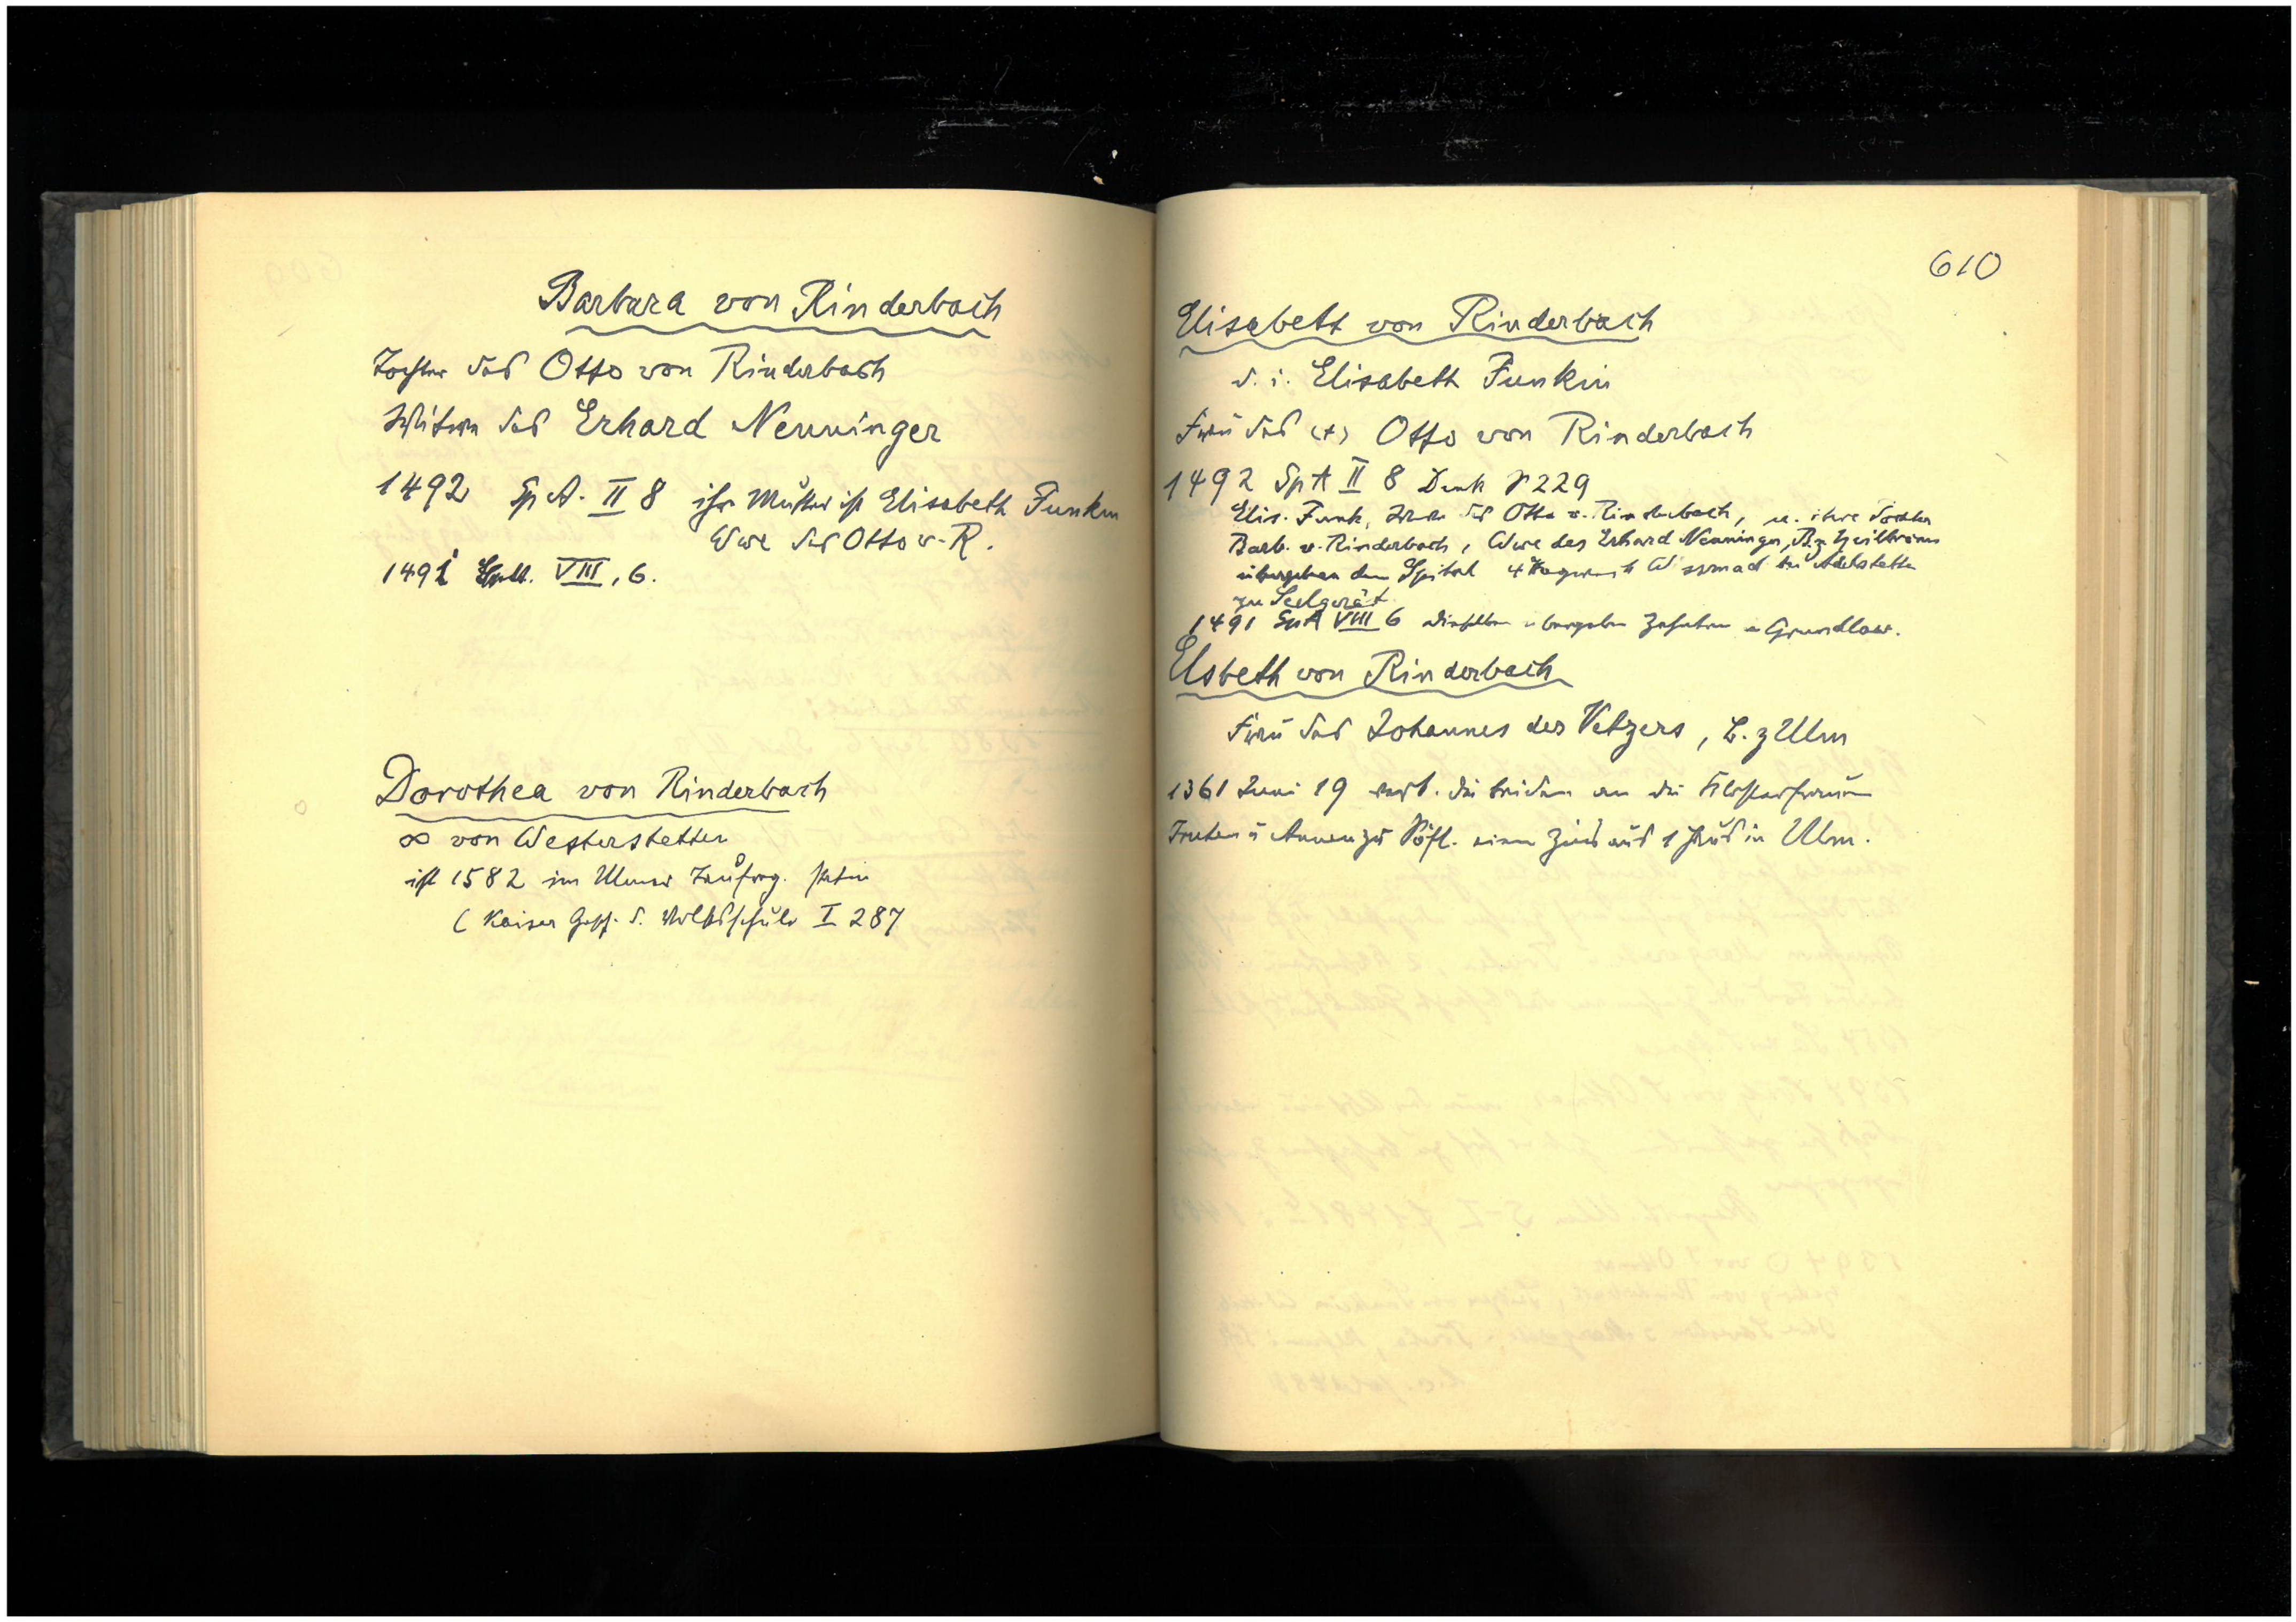 Barbara von Rinderbach
Tochter des Otto von Rinderbach
Witwe des Erhard Nenninger
1492 Sp A. II 8 ihre Mutter ist Elisabeth Funkin
Wwe des Otto v. R.
1491 VIII, 6.
Dorothea von Rinderbach
∞ von Westerstetten
ist 1582 im Ulmer Taufreg. Patin
(Kaiser Gesch. d. Volksschule I 287
610
Elisabeth von Rinderbach
d. i. Elisabeth Funkin
Frau des (+) Otto von Rinderbach
1492 Sp A II 8 Denk 229
Elis. Funk, Wwe des Otto v. Rinderbach, u. ihre Tochter
Barb. v. Rinderbach, Wwe des Erhard Nenninger, Bg z Heilbronn
übergeben dem Spital 4 Tagwerk Wissmad bei
zu Seelgerät
1491 Sp A VIII 6 dieselben übergeben Zehnten
Elsbeth von Rinderbach
Frau des Johannes des Vetzers, B. z Ulm
1361 Juni 19 verk. die beiden an die Klosterfrauen
u Annen zu Söfl. einen Zins aus 1 Haus in Ulm.